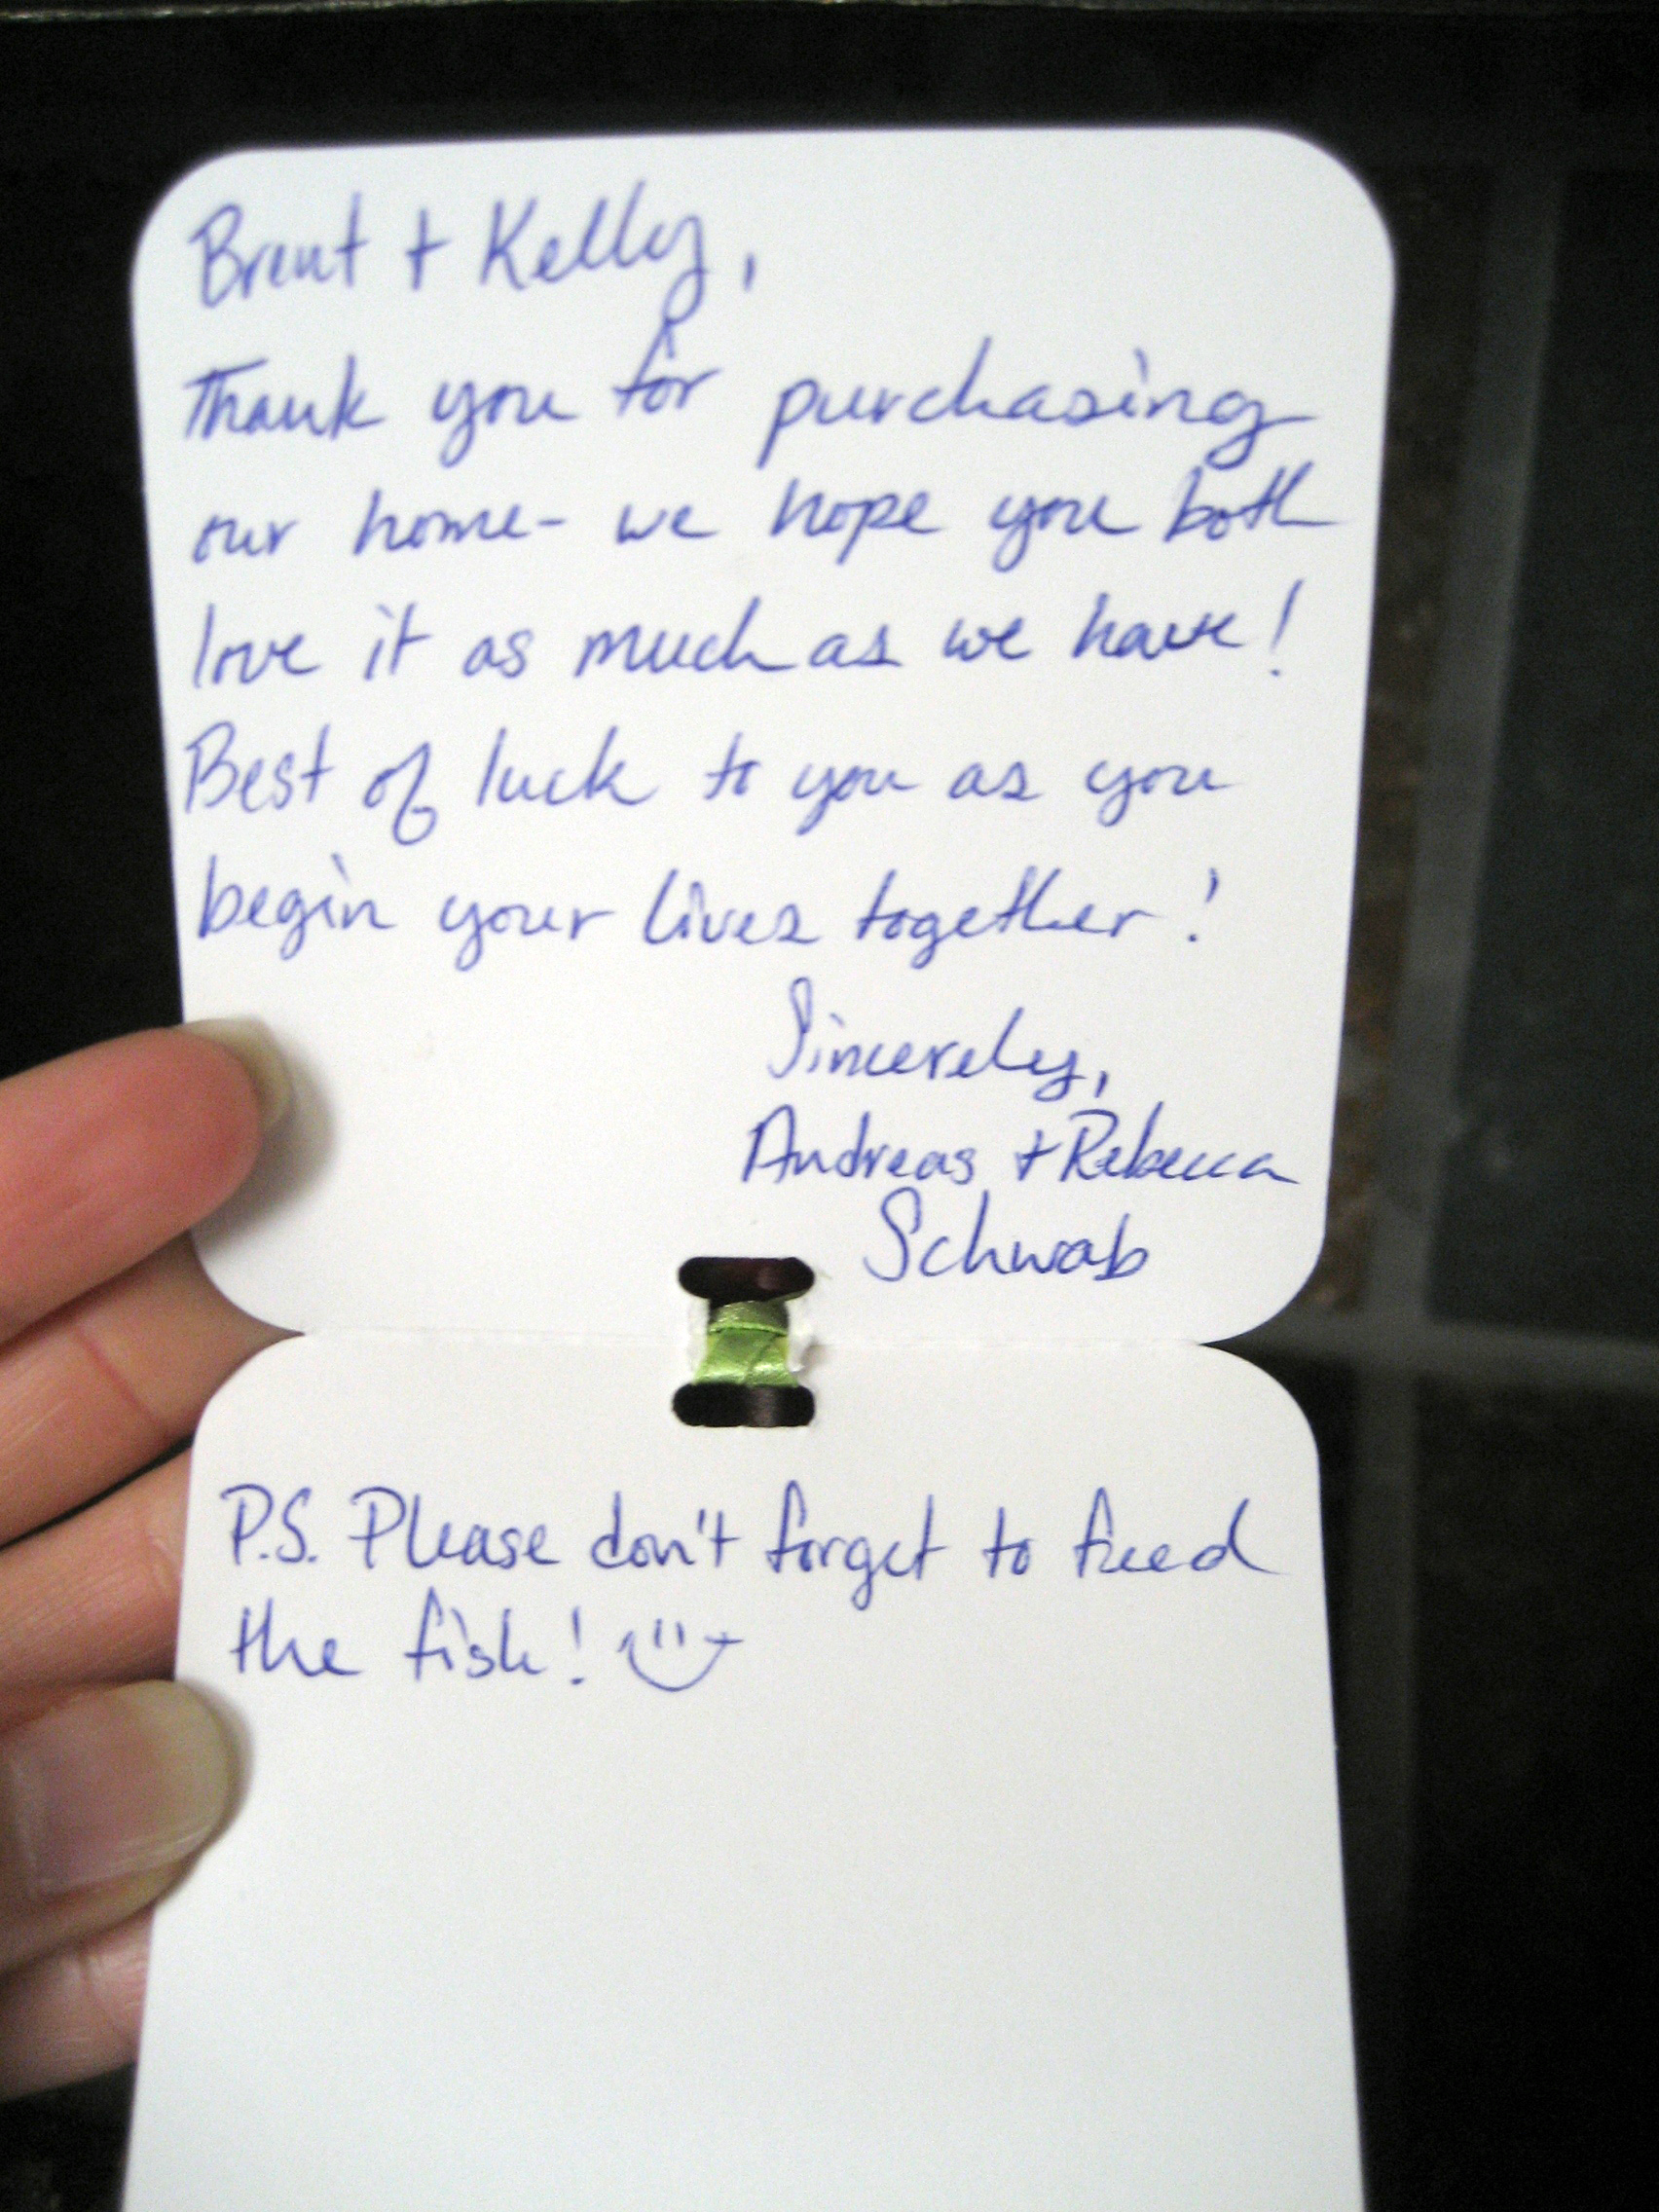 Brent + Kelly,
Thank you for purchasing
our home- we hope you both
love it as much as we have!
Best of luck to you as you
begin your lives together!
Sincerely,
Andreas + Rebecca
Schwab
P.S. Please don't forget to feed
the fish!